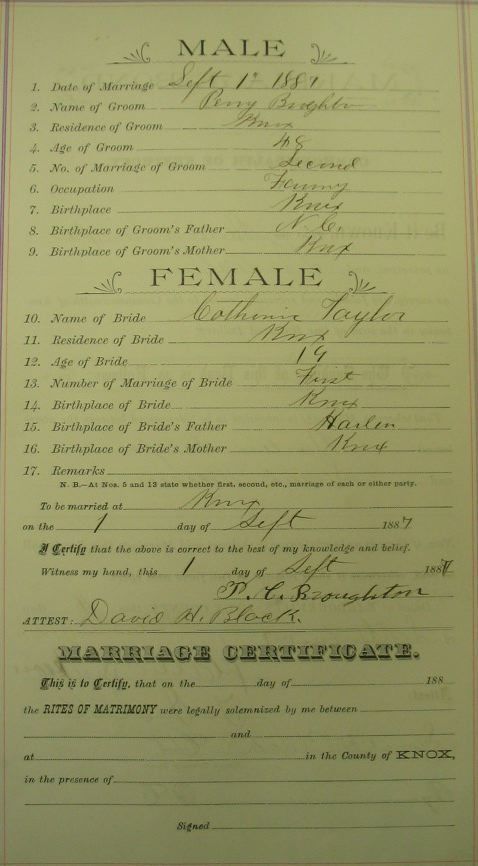 MALE
1. Date of Marriage Sept 1st 1887
2. Name of Groom Perry Broghton
3. Residence of Groom Knox
4. Age of Groom 48
5. No. of Marriage of Groom Second
6. Occupation
7. Birthplace Knox
8. Birthplace of Groom's Father N. C.
9. Birthplace of Groom's Mother Knx
FEMALE
10. Name of Bride Taylor
11. Residence of Bride Knx
12. Age of Bride 19
13. Number of Marriage of Bride First
14. Birthplace of Bride Knx
15. Birthplace of Bride's Father Harlen
16. Birthplace of Bride's Mother Knx
17. Remarks
N. B.—At Nos. 5 and 13 state whether first, second, etc., marriage of each or either party.
To be married at Knx
on the 1 day of Sept 1887
I Certify that the above is correct to the best of my knowledge and belief.
Witness my hand, this 1 day of Sept 1887
P. C. Broughton
ATTEST: David H. Black.
MARRIAGE CERTIFICATE.
This is to Certify, that on the day of 188
the RITES OF MATRIMONY were legally solemnized by me between
and
at in the County of KNOX,
in the presence of
Signed